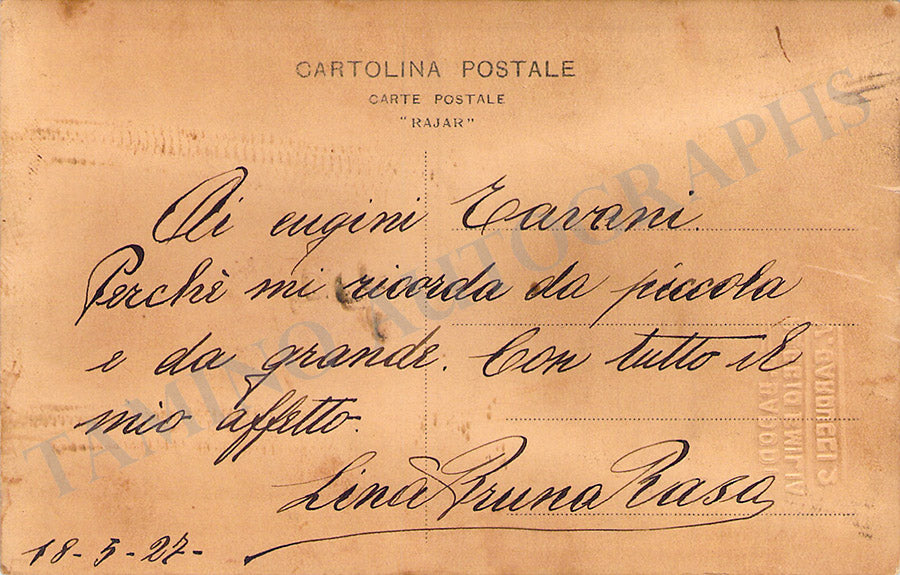 CARTOLINA POSTALE
CARTE POSTALE
"RAJAR"
Ai cugini Tavani.
Perchè mi ricorda da piccola
e da grande. Con tutto il
mio affetto.
Lina Bruna Rasa
18-5-27-
TAMINO AUTOGRAPHS